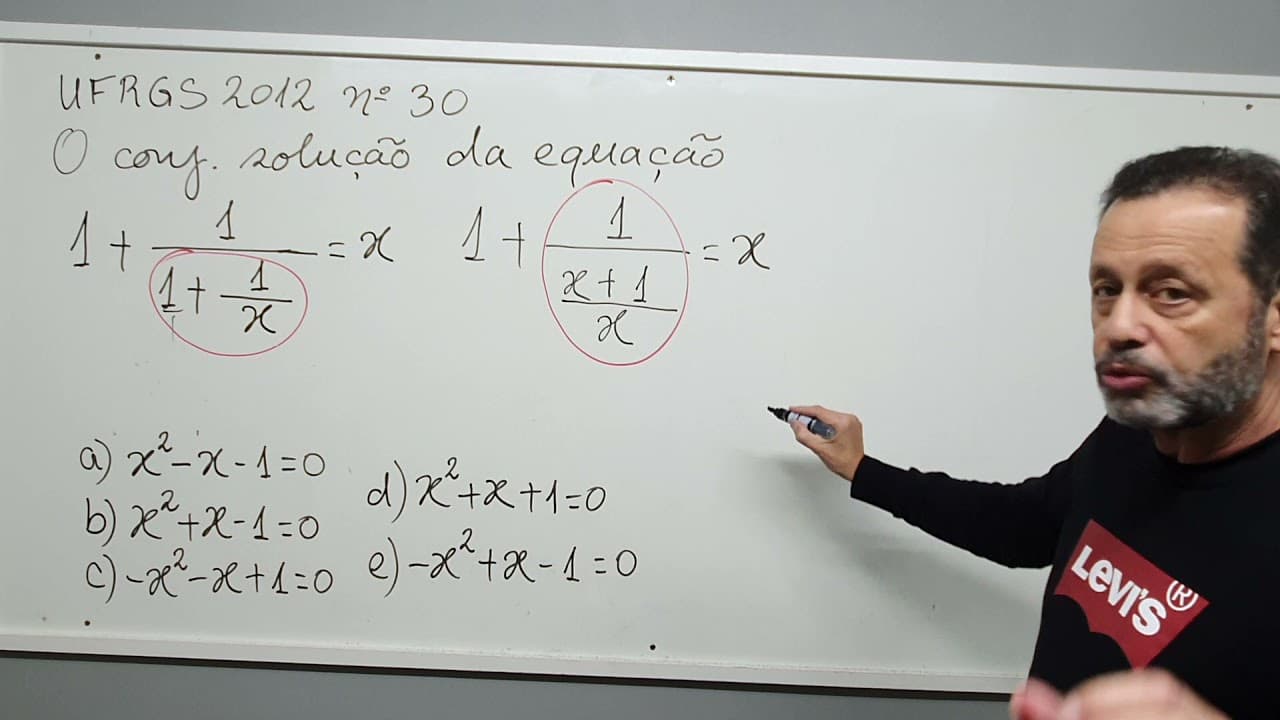 UFRGS 2012 nº 30
O conj. solução da equação
1 + 1/(1 + 1/x) = x
1 + 1/((x + 1)/x) = x
a) x² - x - 1 = 0
b) x² + x - 1 = 0
c) -x² - x + 1 = 0
d) x² + x + 1 = 0
e) -x² + x - 1 = 0
LEVI'S ®